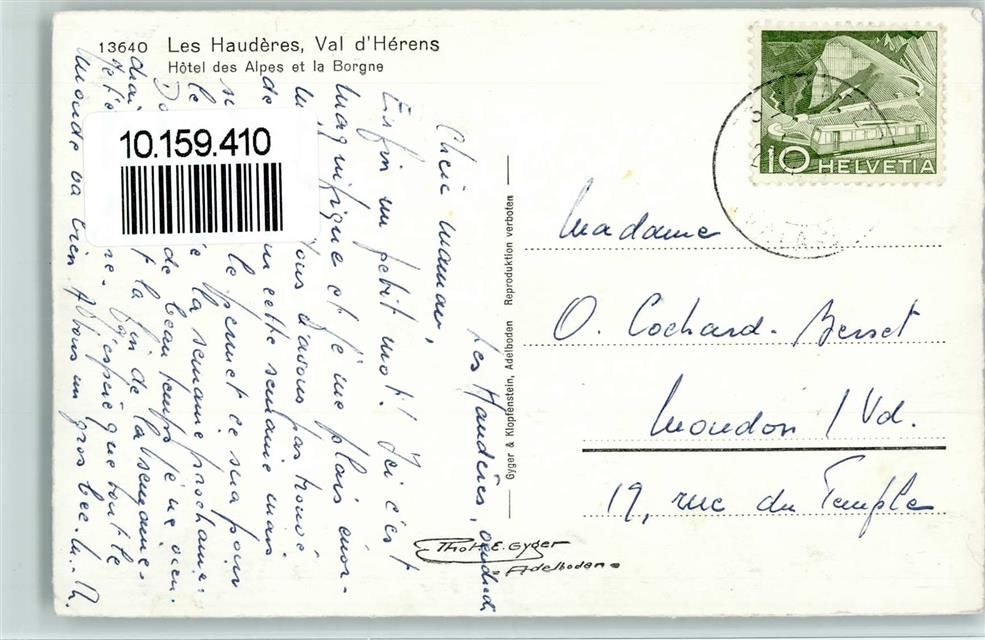 13640 Les Haudères, Val d'Hérens
Hôtel des Alpes et la Borgne
10.159.410
10 HELVETIA
Les Haudères, vendredi
Chère maman,
Enfin un petit mot! Ici c'est
magnifique et je me plais énor-
Nous n'avons pas trouvé
de cette semaine mais
si le permet ce sera pour
le la semaine prochaine.
de beau temps je ne vien-
drai la fin de la semaine.
J'espère que tout le
monde va bien. Vous un gros bec.
Gyger & Klopfenstein, Adelboden Reproduktion verboten
Phot. E. Gyger
Adelboden
Madame
O. Cochard-Besset
Moudon / Vd.
19, rue du Temple